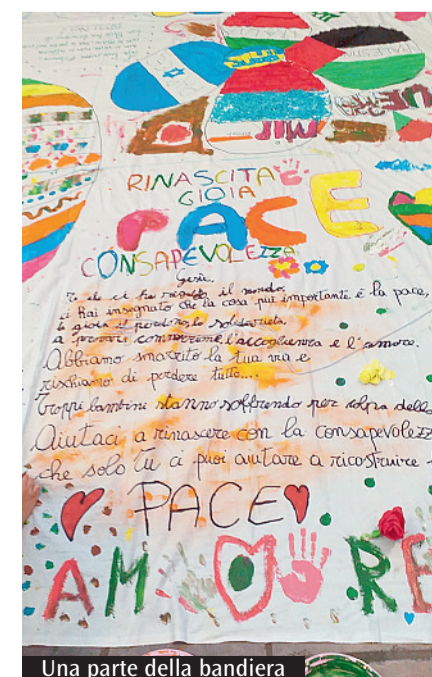 RINASCITA
GIOIA
PACE
CONSAPEVOLEZZA
Gesù,
Tu che ci hai il mondo,
ci hai insegnato che la cosa più importante è la pace,
la gioia il perdono, la solidarietà,
a provare l'accoglienza e l'amore.
Abbiamo smarrito la tua via e
rischiamo di perdere tutto....
Troppi bambini stanno soffrendo per colpa della
Aiutaci a rinascere con la consapevolezz
che solo Tu ci puoi aiutare a ricostruire
PACE
AMORE
Una parte della bandiera